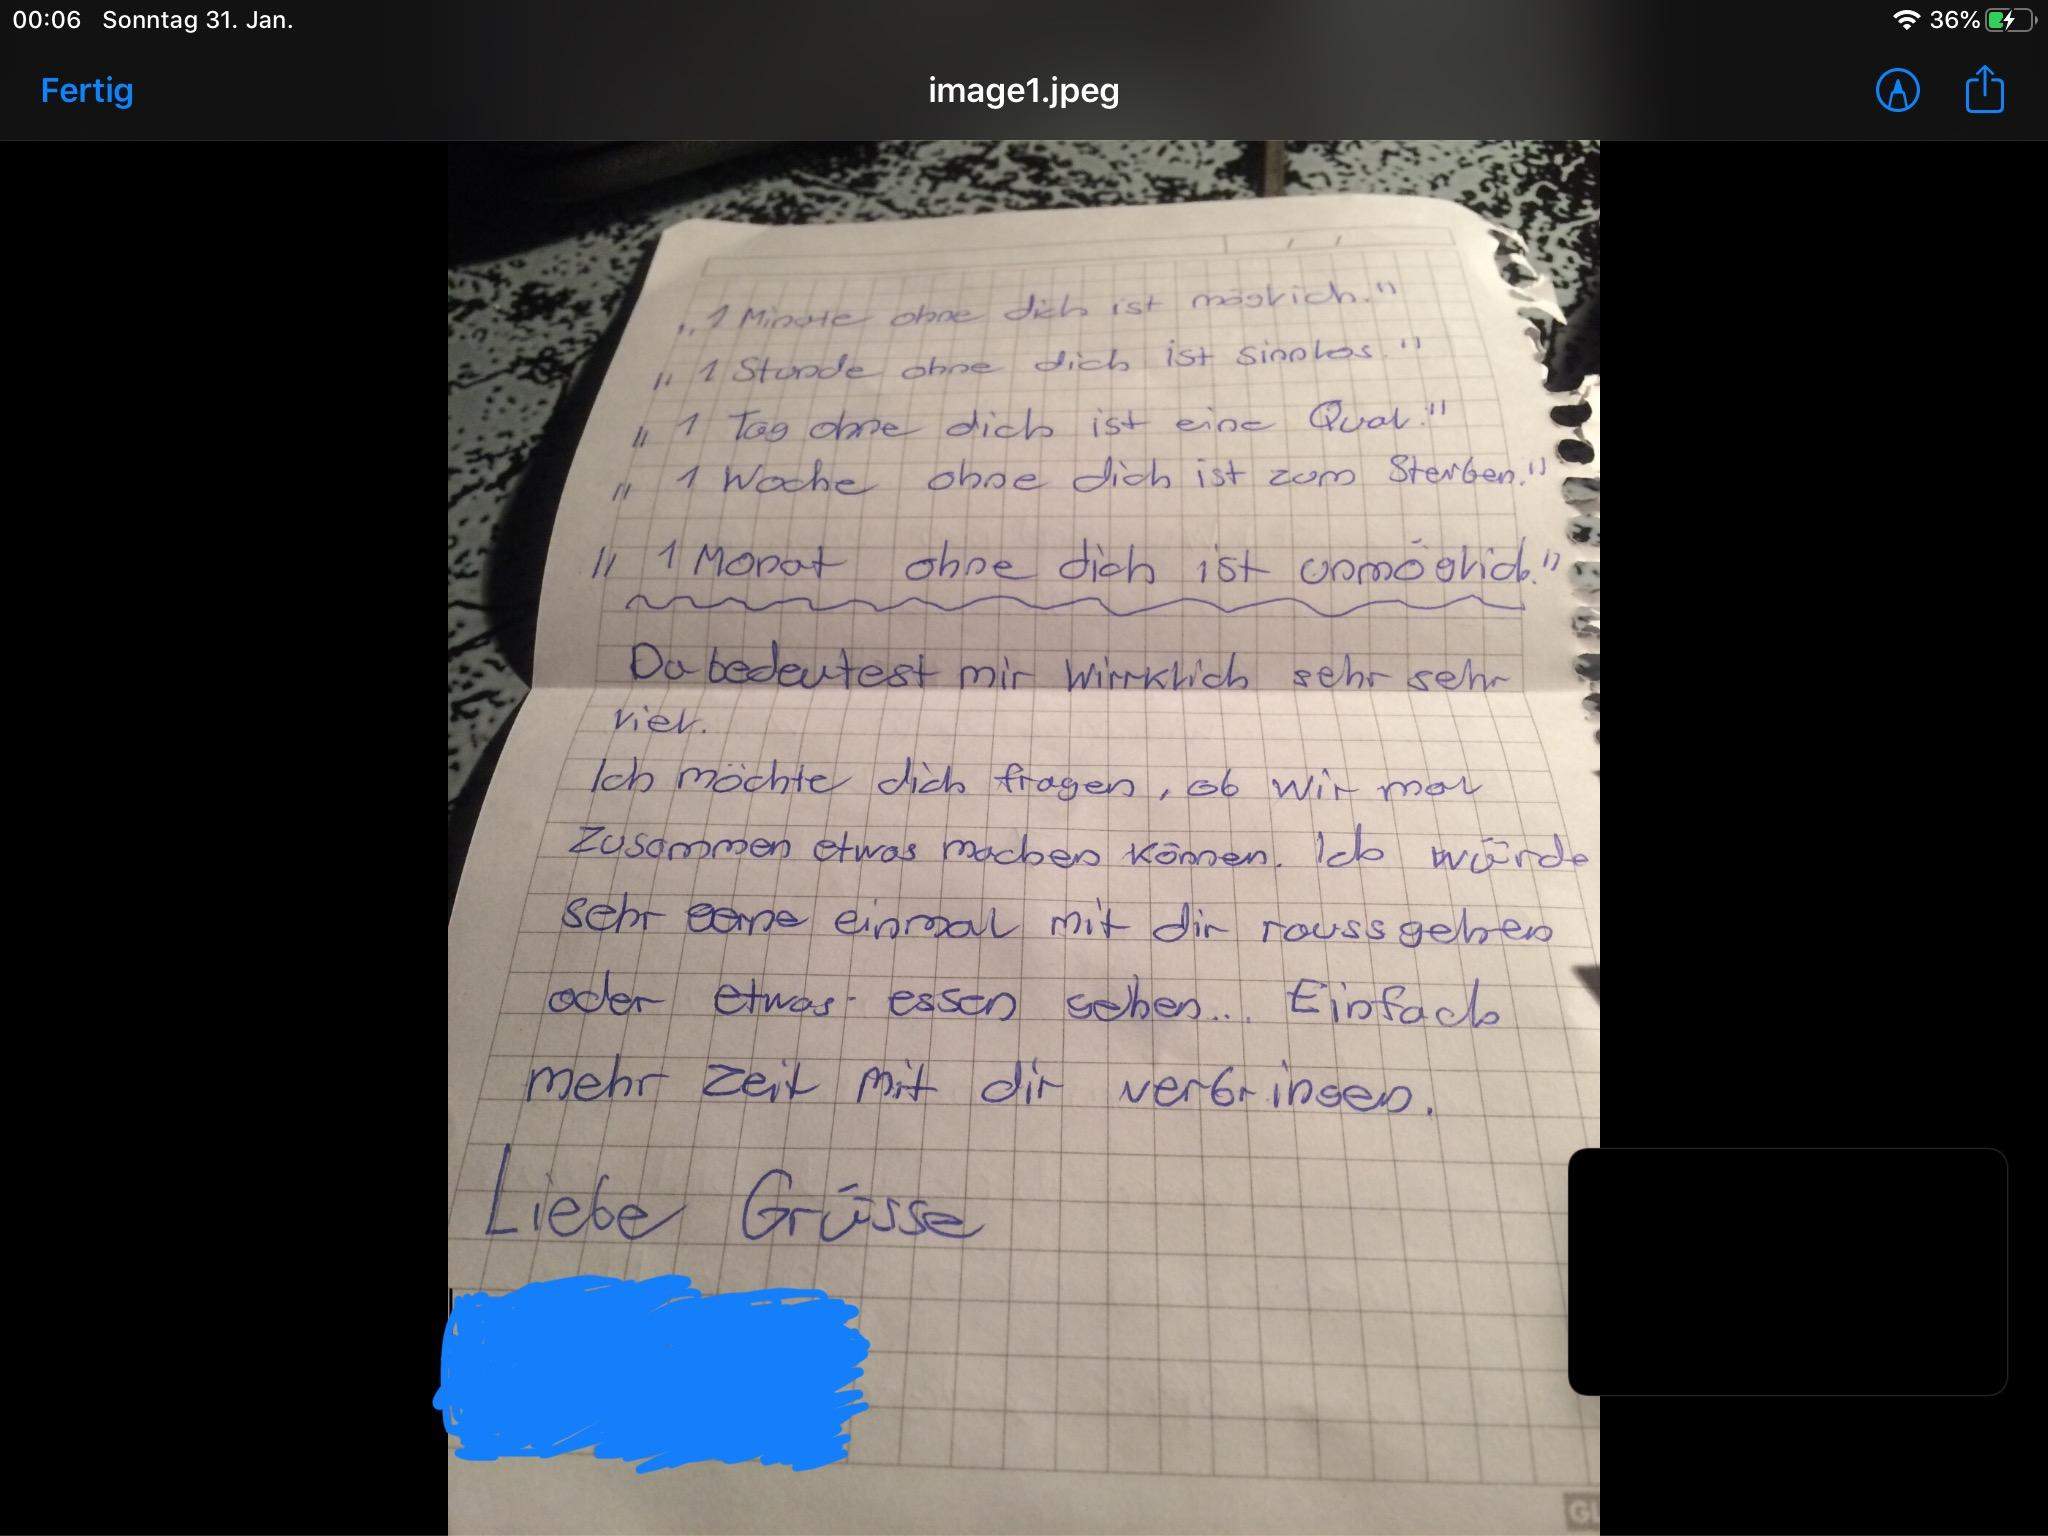 00:06 Sonntag 31. Jan.
36%
Fertig
image1.jpeg
„1 Minute ohne dich ist möglich."
„ 1 Stunde ohne dich ist sinnlos."
„ 1 Tag ohne dich ist eine Qual."
„ 1 Woche ohne dich ist zum Sterben."
„ 1 Monat ohne dich ist unmöglich."
Du bedeutest mir wirrklich sehr sehr
viel.
Ich möchte dich fragen, ob wir mal
zusammen etwas machen können. Ich würde
sehr gerne einmal mit dir raussgehen
oder etwas essen gehen... Einfach
mehr zeit mit dir verbringen.
Liebe Grüsse